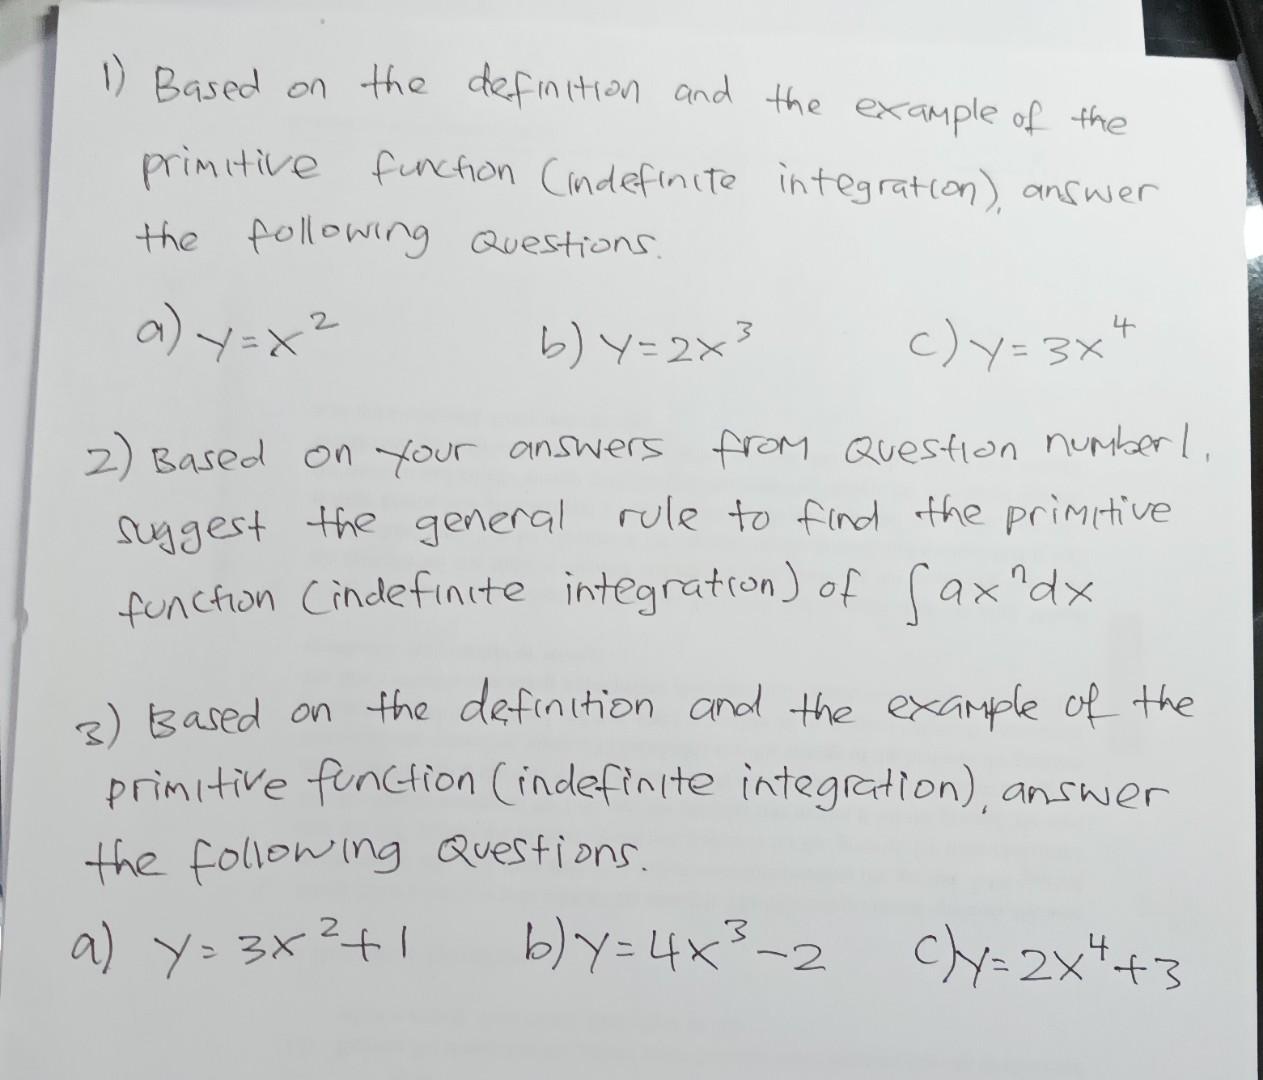 1) Based on the definition and the example of the
primitive function (indefinite integration), answer
the following Questions.
a) y=x² b) y=2x³ c) y=3x⁴
2) Based on your answers from Question number 1,
suggest the general rule to find the primitive
function (indefinite integration) of ∫axⁿdx
3) Based on the definition and the example of the
primitive function (indefinite integration), answer
the following Questions.
a) y=3x²+1 b) y=4x³-2 c) y=2x⁴+3